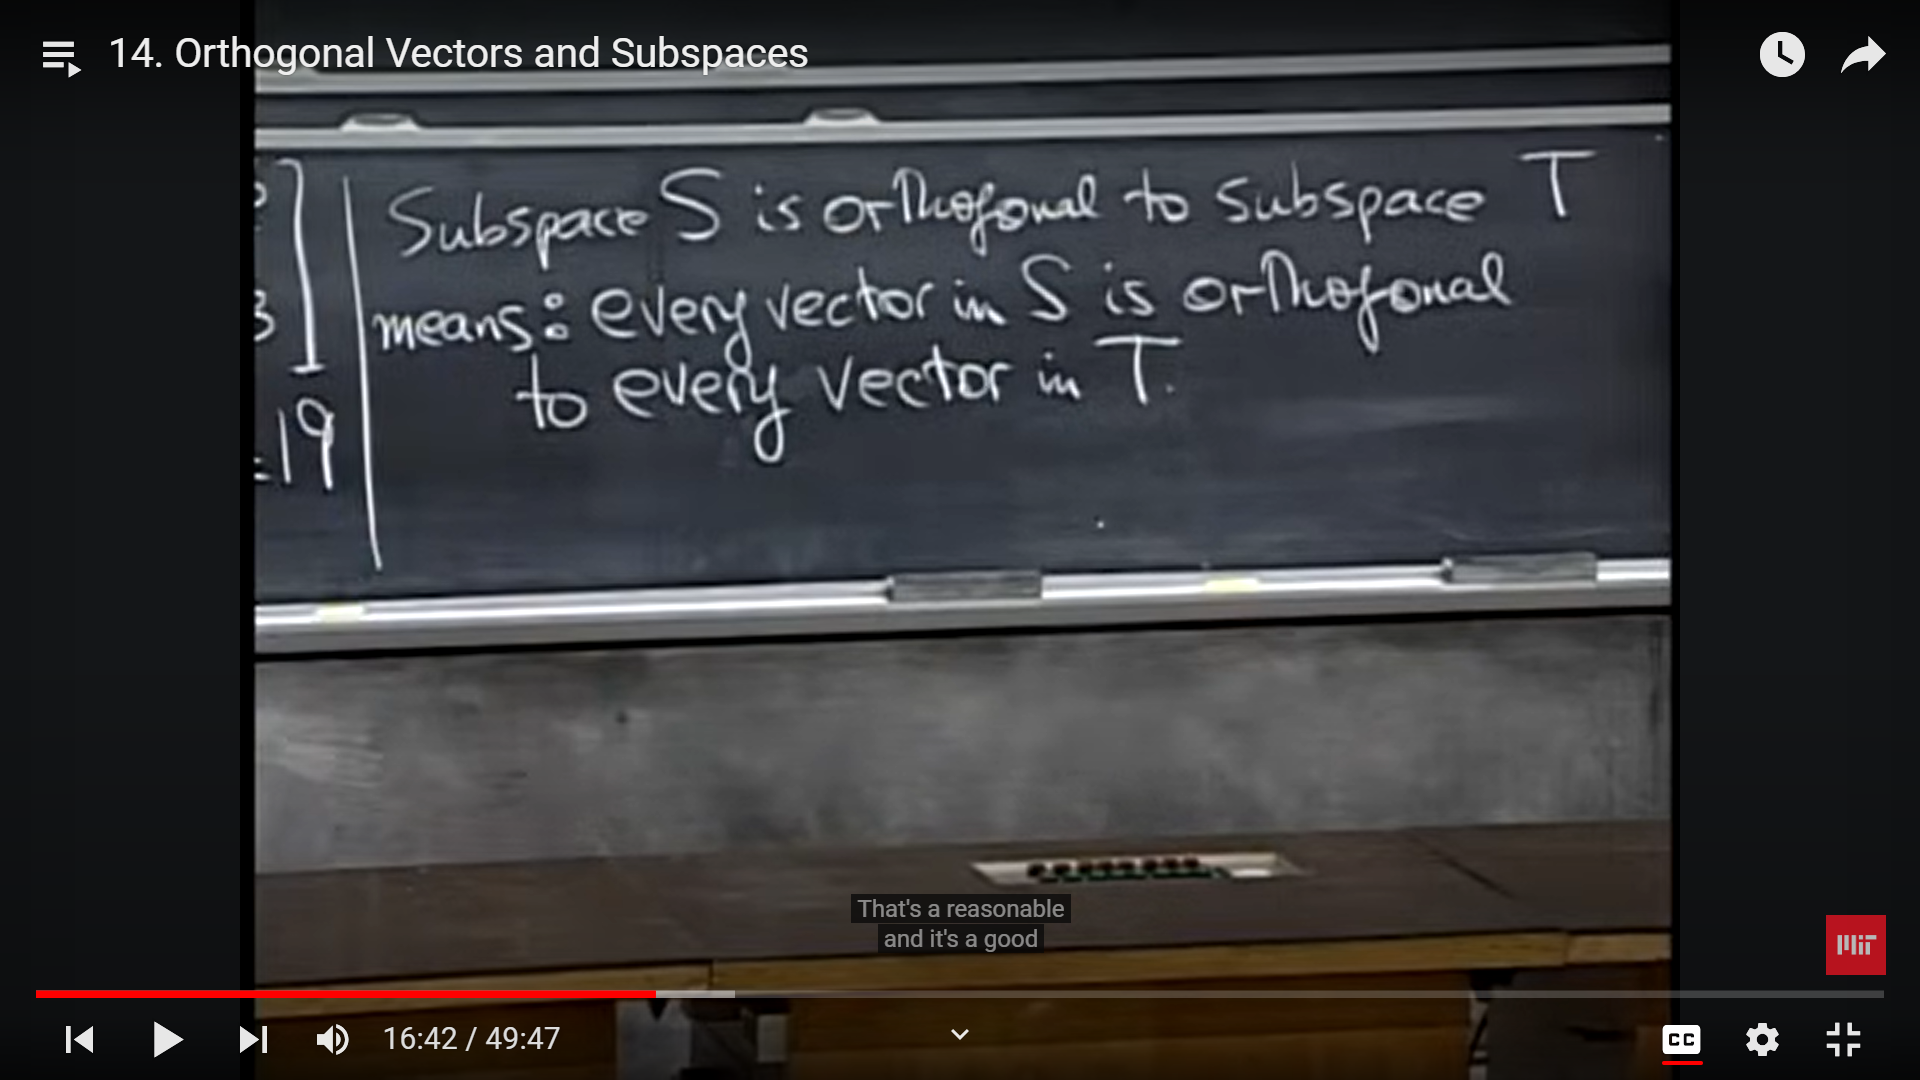 14. Orthogonal Vectors and Subspaces
Subspace S is orthogonal to subspace T
means: every vector in S is orthogonal
to every vector in T.
3
=19
That's a reasonable
and it's a good
MIT
16:42 / 49:47
CC